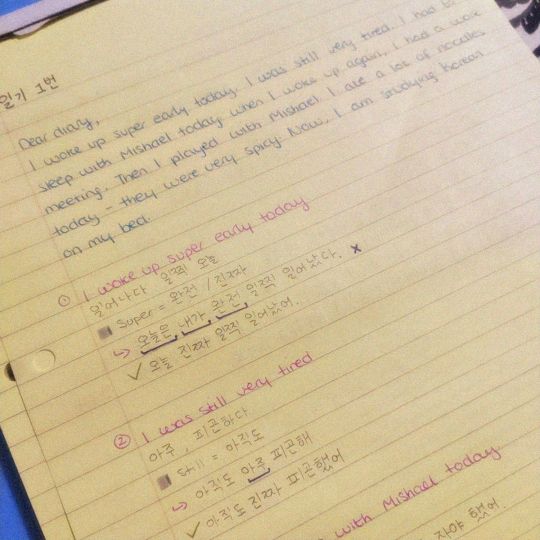 일기 1번
Dear diary,
I woke up super early today. I was still very tired. I had to
sleep with Mishael today. When I woke up again, I had a work
meeting. Then I played with Mishael. I ate a lot of noodles
today - they were very spicy. Now, I am studying Korean
on my bed.
① I woke up super early today
일어나다 일찍 오늘
super = 완전 / 진짜
↳ 오늘은 내가 완전 일찍 일어났다. x
✓ 오늘 진짜 일찍 일어났어.
② I was still very tired
아주, 피곤하다
still = 아직도
↳ 아직도 아주 피곤해
✓ 아직도 진짜 피곤했어
with Mishael today.
자야 했어